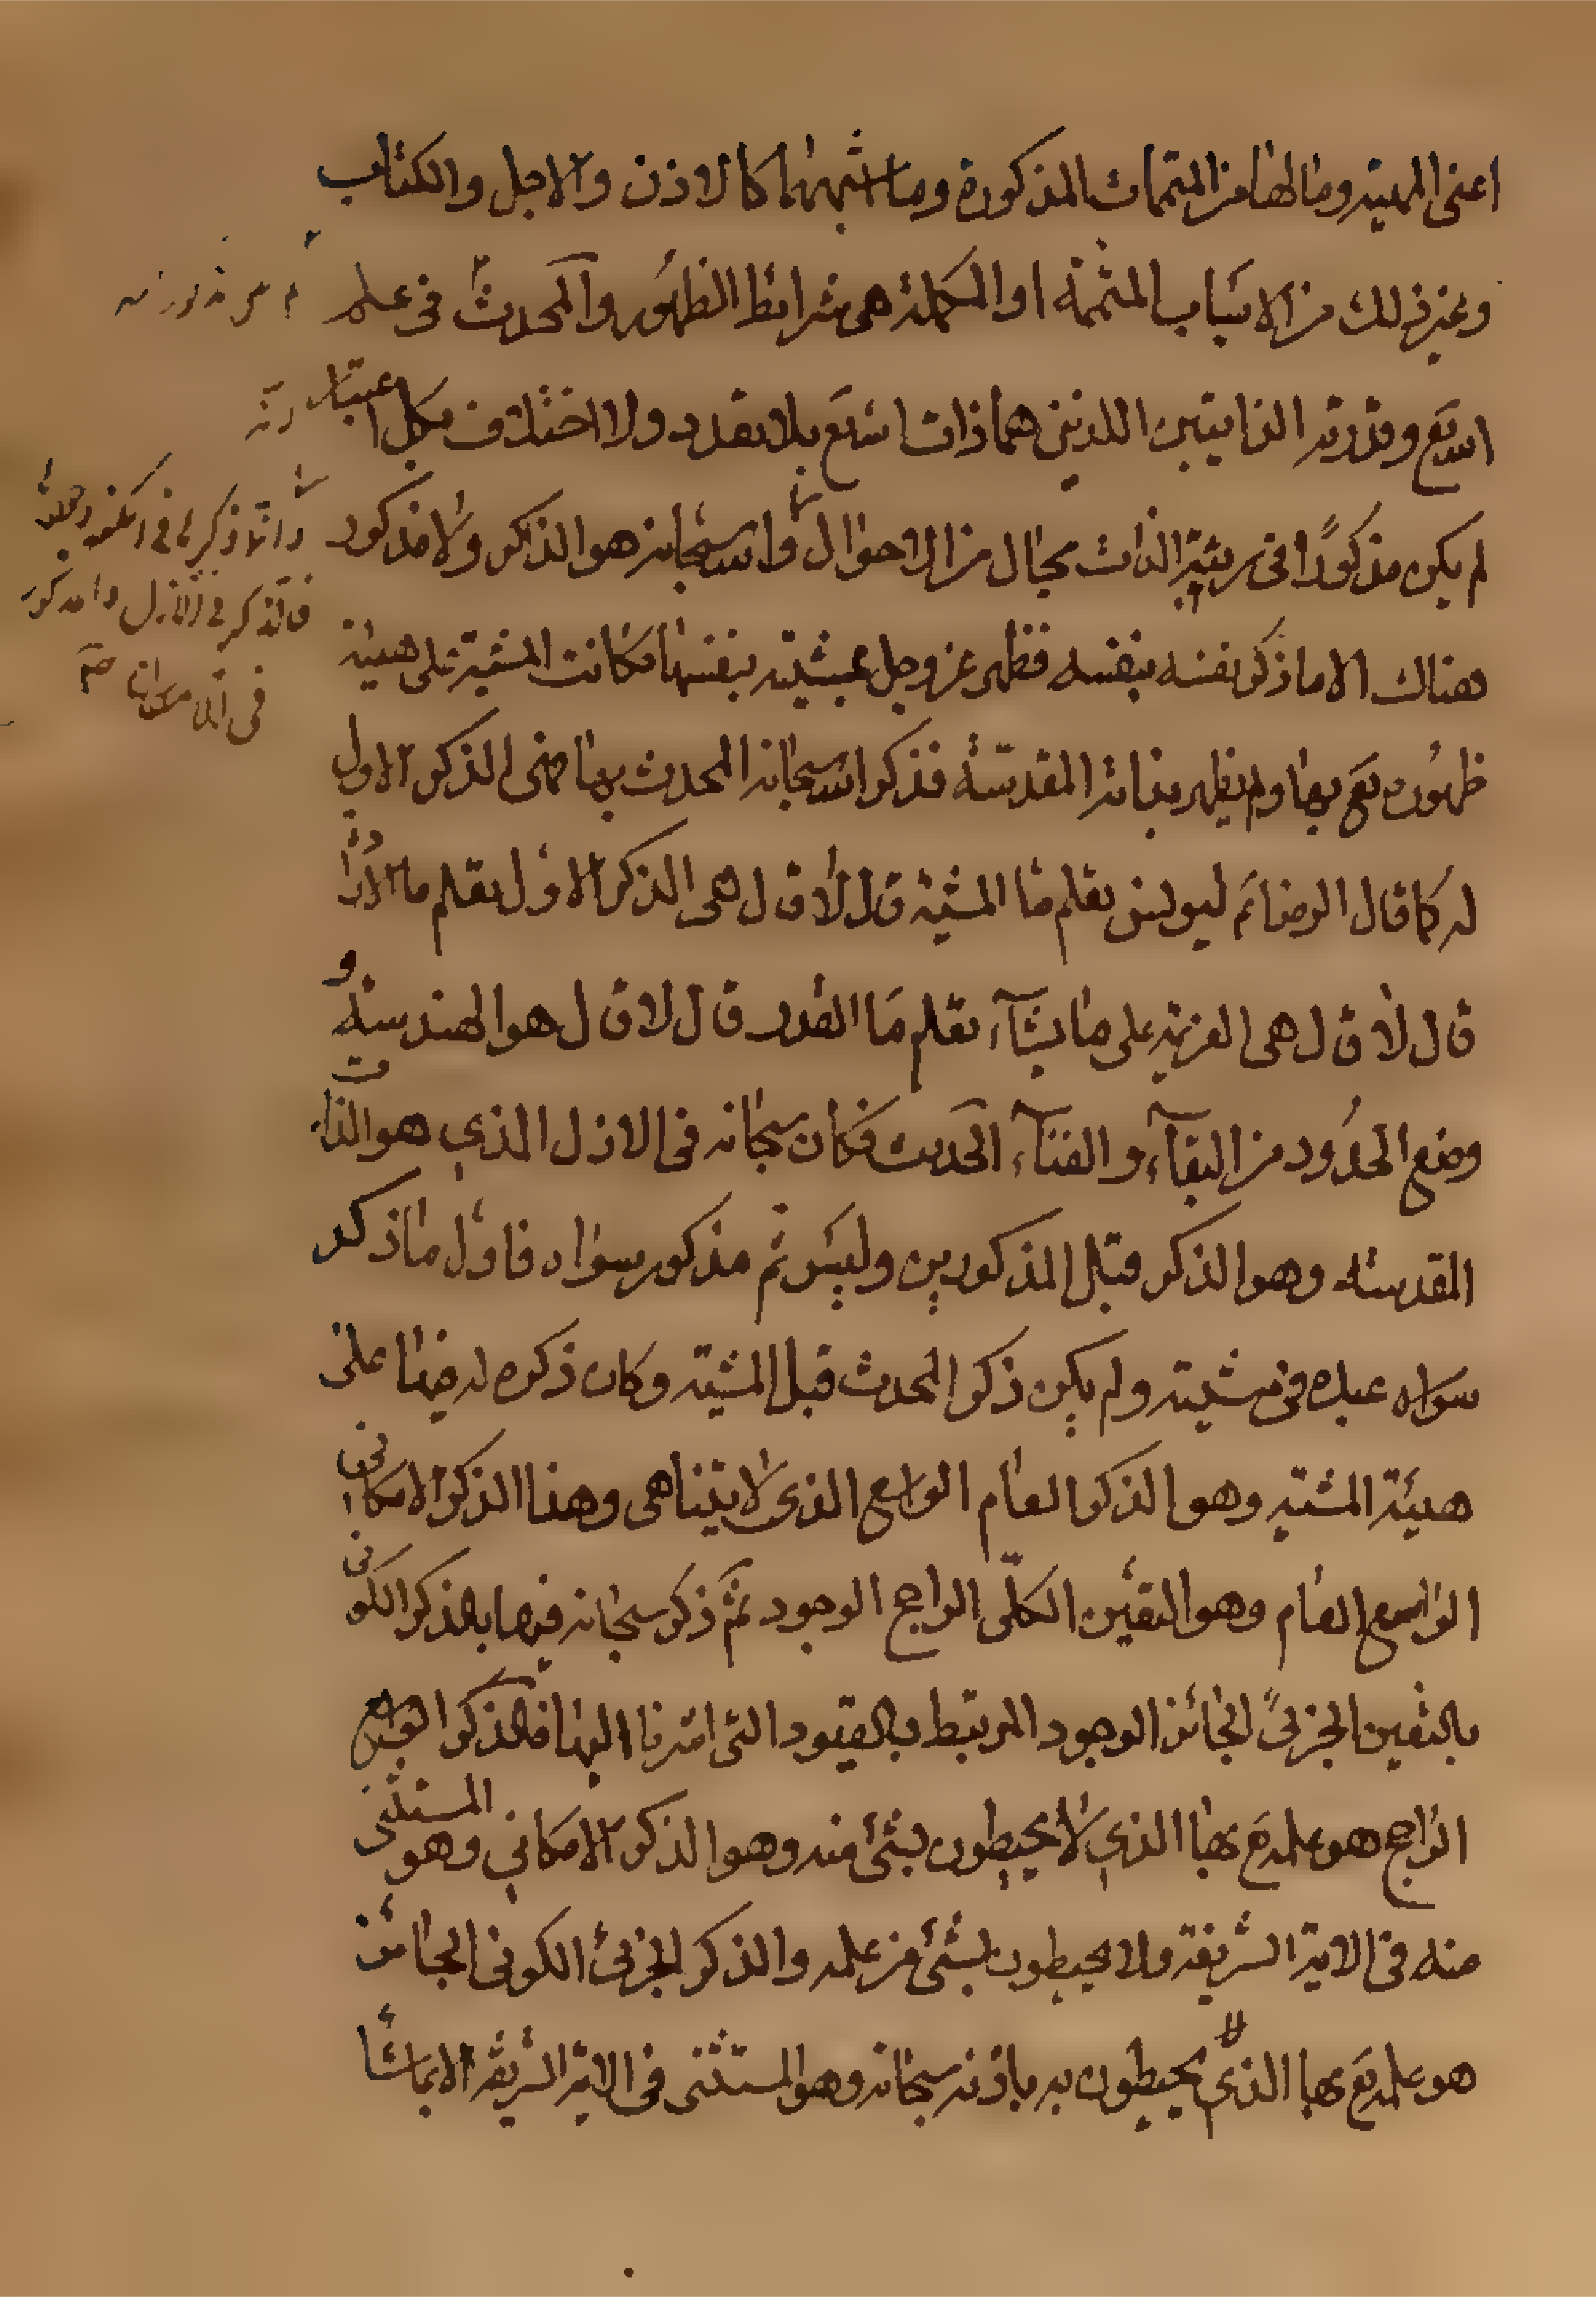 اعنى المهيته وما لها من المتممات المذكورة وما اشبهها كالاذن والاجل والكتاب
وغير ذلك من الاسباب المتممة او المكملة هى شرايط الظهور والمحدث فى علم
الله تع وقدرته الذاتيتين اللذين هما ذات الله تع بلا تعدد ولا اختلاف بكل اعتبار
لم يكن مذكورًا فى رتبة الذات بحال من الاحوال والله سبحانه هو الذاكر ولا مذكور
هناك الا ما ذكر نفسه بنفسه فظهر عز وجل بمشيته بنفسها فكانت المشية على هيئة
ظهوره تع بها ولم يظهر بذاته المقدسة فذكر الله سبحانه المحدث بها فهى الذكر الاول
له كما قال الرضا ع ليونس تعلم ما المشية قال لا قال هى الذكر الاول تعلم ما الارادة
قال لا قال هى العزيمة على ما يشآء تعلم ما القدر قال لا قال هو الهندسة و
وضع الحدود من البقآء والفنآء الحديث فكان سبحانه فى الازل الذى هو الذات
المقدسة وهو الذكر قبل المذكورين وليس ثم مذكور سواه فاول ما ذكر
سواه عبده فى مشيته ولم يكن ذكر المحدث قبل المشية وكان ذكره له فيها على
هيئة المشية وهو الذكر العام الواسع الذى لا يتناهى وهذا الذكر الامكانى
الواسع العام وهو التعين الكلّى الراجح الوجود ثم ذكر سبحانه فيها بالذكر الكونى
بالتعين الجزئى الجائز الوجود المرتبط بالقيود التى اشرنا اليها فالذكر الواسع
الراجح هو علمه تع بها الذى لا يحيطون بشئ منه وهو الذكر الامكانى وهو المستثنى
منه فى الاية الشريفة ولا يحيطون بشئ من علمه والذكر الجزئى الكونى الجائز
هو علمه تع بها الذى لا يحيطون به باذنه سبحانه وهو المستثنى فى الاية الشريفة الا بما شاء